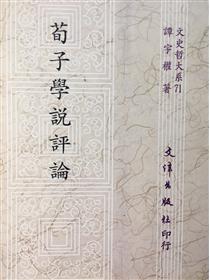 文史哲大系71
譚宇權 著
文津出版社印行
荀子學說評論